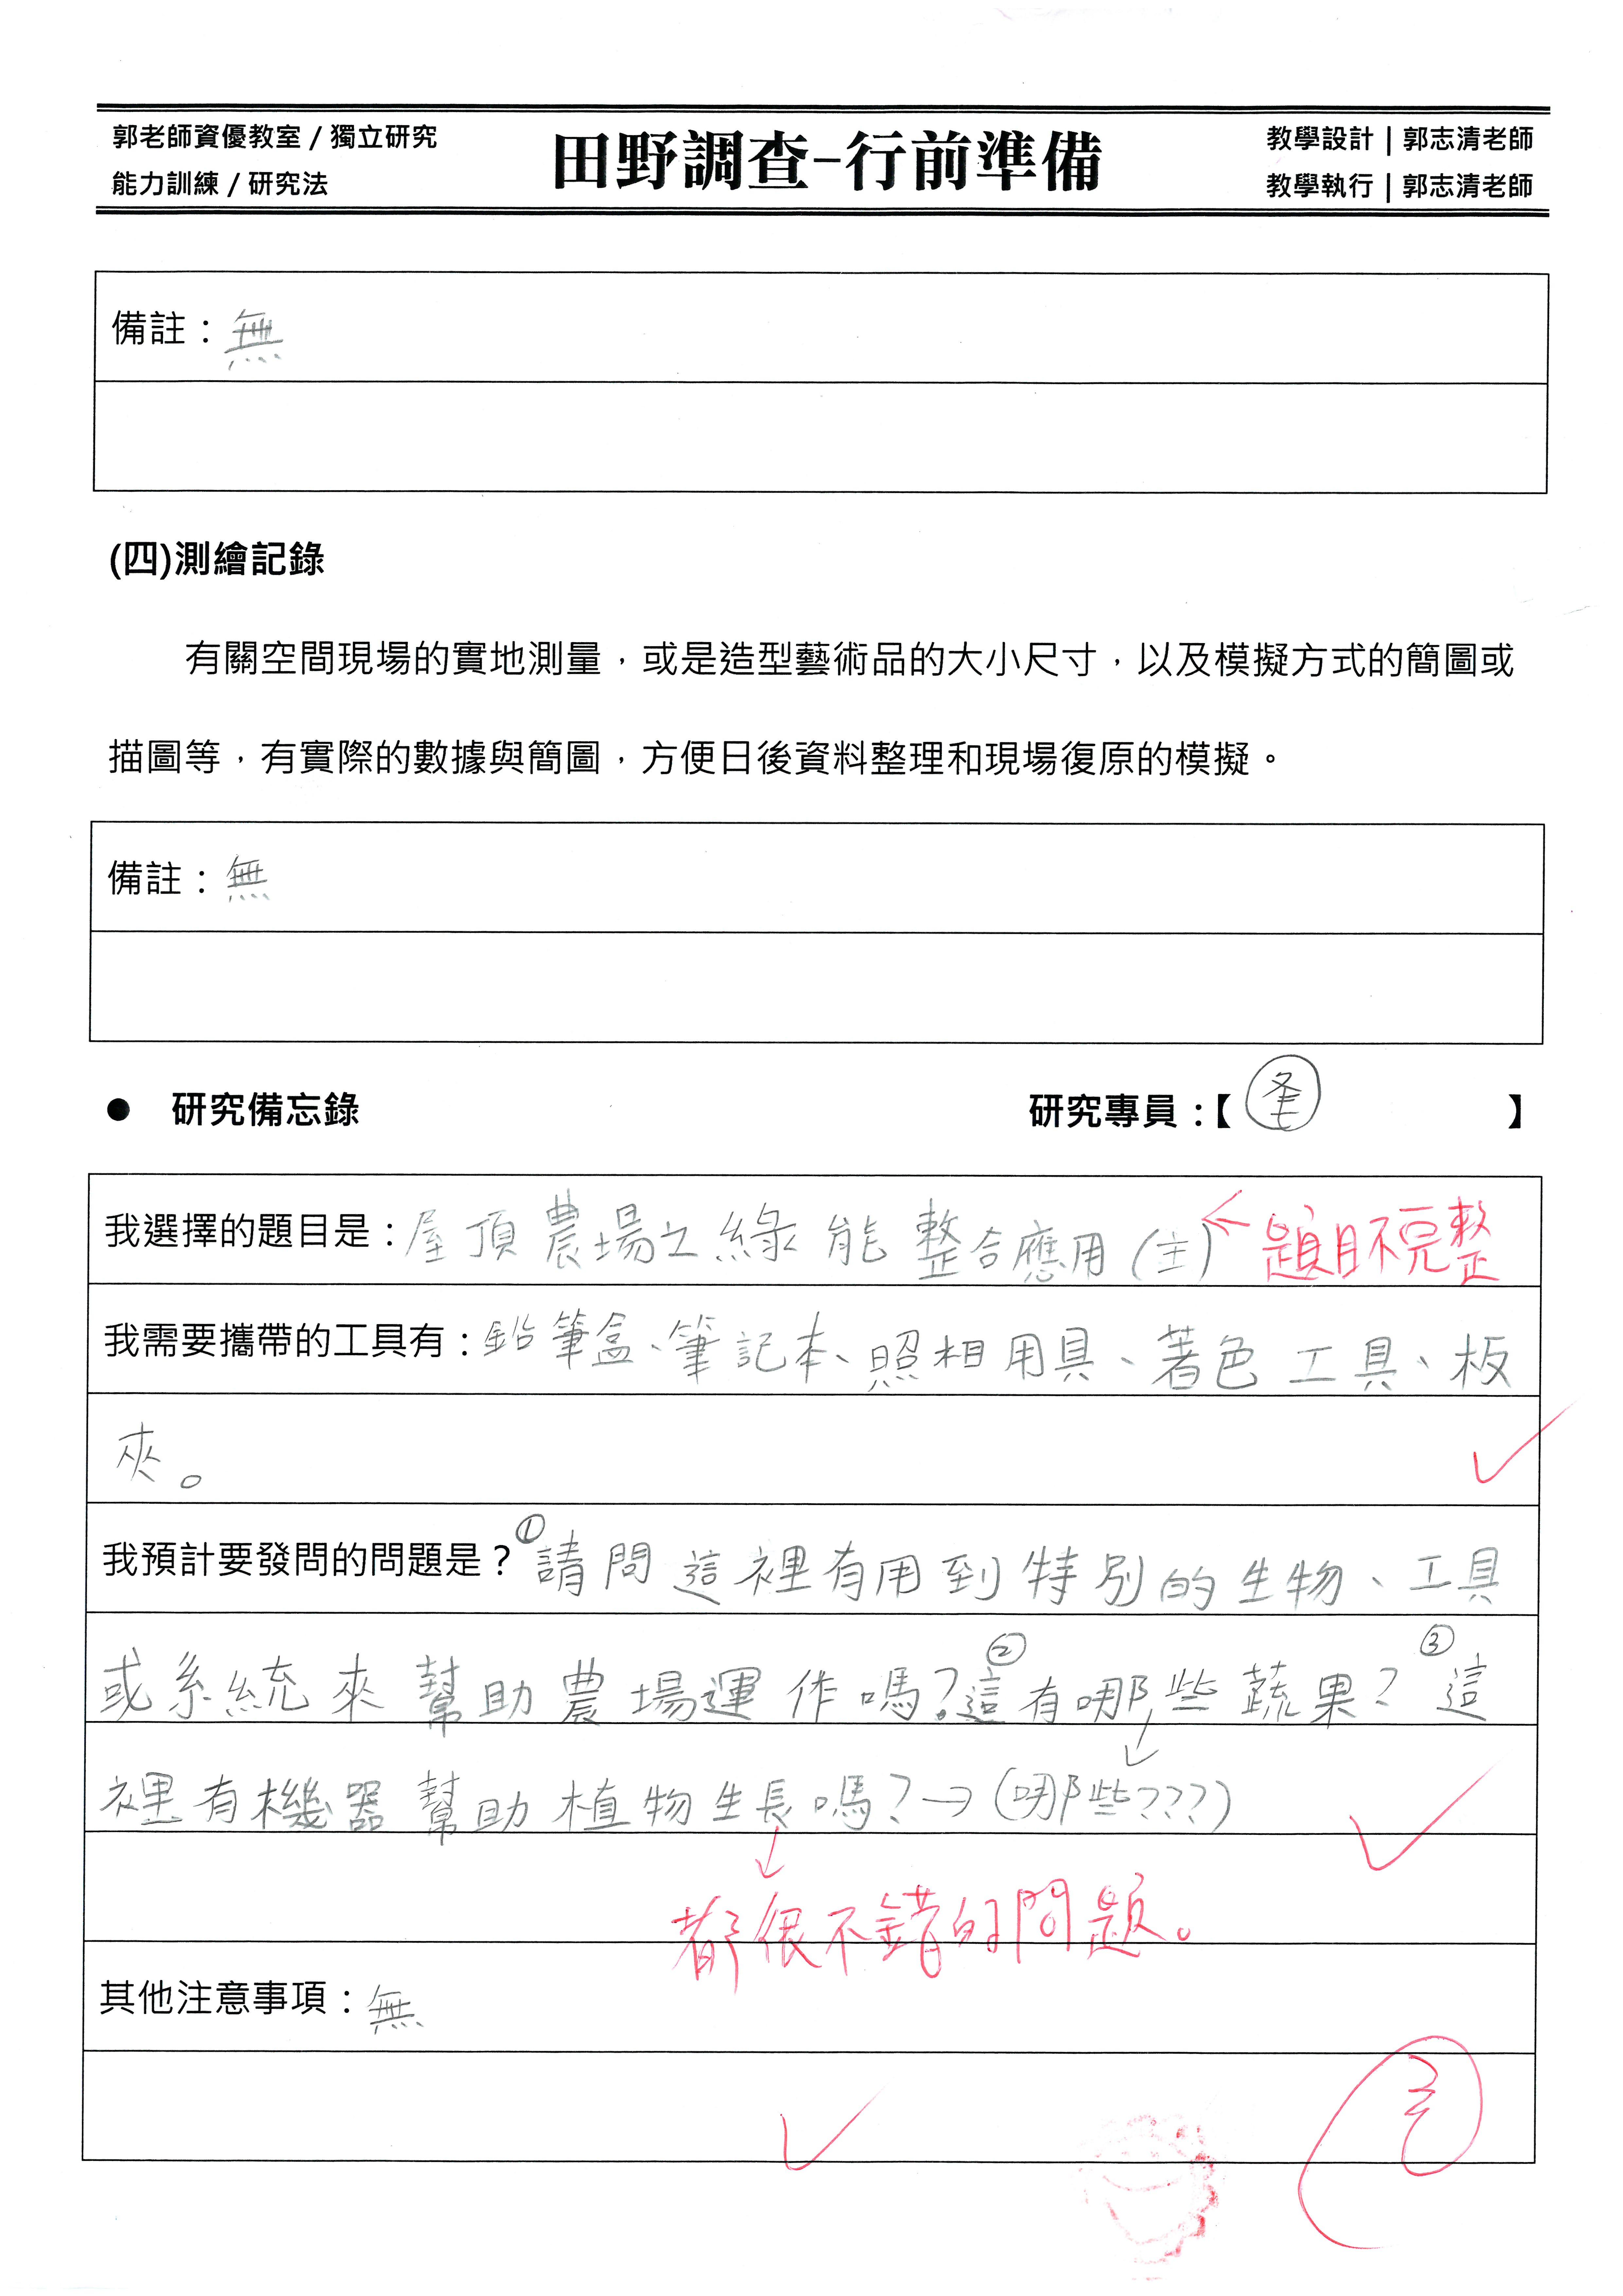 郭老師資優教室 / 獨立研究
能力訓練 / 研究法
田野調查-行前準備
教學設計 | 郭志清老師
教學執行 | 郭志清老師
備註：無
(四)測繪記錄
有關空間現場的實地測量，或是造型藝術品的大小尺寸，以及模擬方式的簡圖或
描圖等，有實際的數據與簡圖，方便日後資料整理和現場復原的模擬。
備註：無
● 研究備忘錄
研究專員：【 】
我選擇的題目是：屋頂農場之綠能整合應用(主) ← 題目不完整
我需要攜帶的工具有：鉛筆盒、筆記本、照相用具、著色工具、板
夾。
我預計要發問的問題是？①請問這裡有用到特別的生物、工具
或系統來幫助農場運作嗎？②這有哪些蔬果？③這
裡有機器幫助植物生長嗎？→(哪些???)
都很不錯的問題。
其他注意事項：無